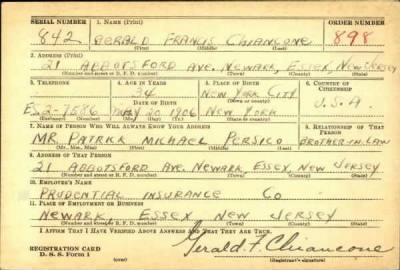 SERIAL NUMBER 1. NAME (Print) ORDER NUMBER
842 GERALD FRANCIS CHIANCONE 898
(First) (Middle) (Last)
2. ADDRESS (Print)
21 ABBOTSFORD AVE. NEWARK, ESSEX, NEW JERSEY
(Number and street or R. F. D. number) (Town) (County) (State)
3. TELEPHONE 4. AGE IN YEARS 5. PLACE OF BIRTH 6. COUNTRY OF CITIZENSHIP
34 NEW YORK CITY
DATE OF BIRTH (Town or county)
ES 2-7586 MAY 20 1906 NEW YORK U.S.A.
(Mo.) (Day) (Yr.) (State or country)
7. NAME OF PERSON WHO WILL ALWAYS KNOW YOUR ADDRESS 8. RELATIONSHIP OF THAT PERSON
MR PATRICK MICHAEL PERSICO BROTHER-IN-LAW
(Mr., Mrs., Miss) (First) (Middle) (Last)
9. ADDRESS OF THAT PERSON
21 ABBOTSFORD AVE. NEWARK ESSEX NEW JERSEY
(Number and street or R. F. D. number) (Town) (County) (State)
10. EMPLOYER'S NAME
PRUDENTIAL INSURANCE CO
11. PLACE OF EMPLOYMENT OR BUSINESS
NEWARK ESSEX NEW JERSEY
(Number and street or R. F. D. number) (Town) (County) (State)
I AFFIRM THAT I HAVE VERIFIED ABOVE ANSWERS AND THAT THEY ARE TRUE.
REGISTRATION CARD
D. S. S. Form 1 (over) Gerald F. Chiancone
(Registrant's signature)